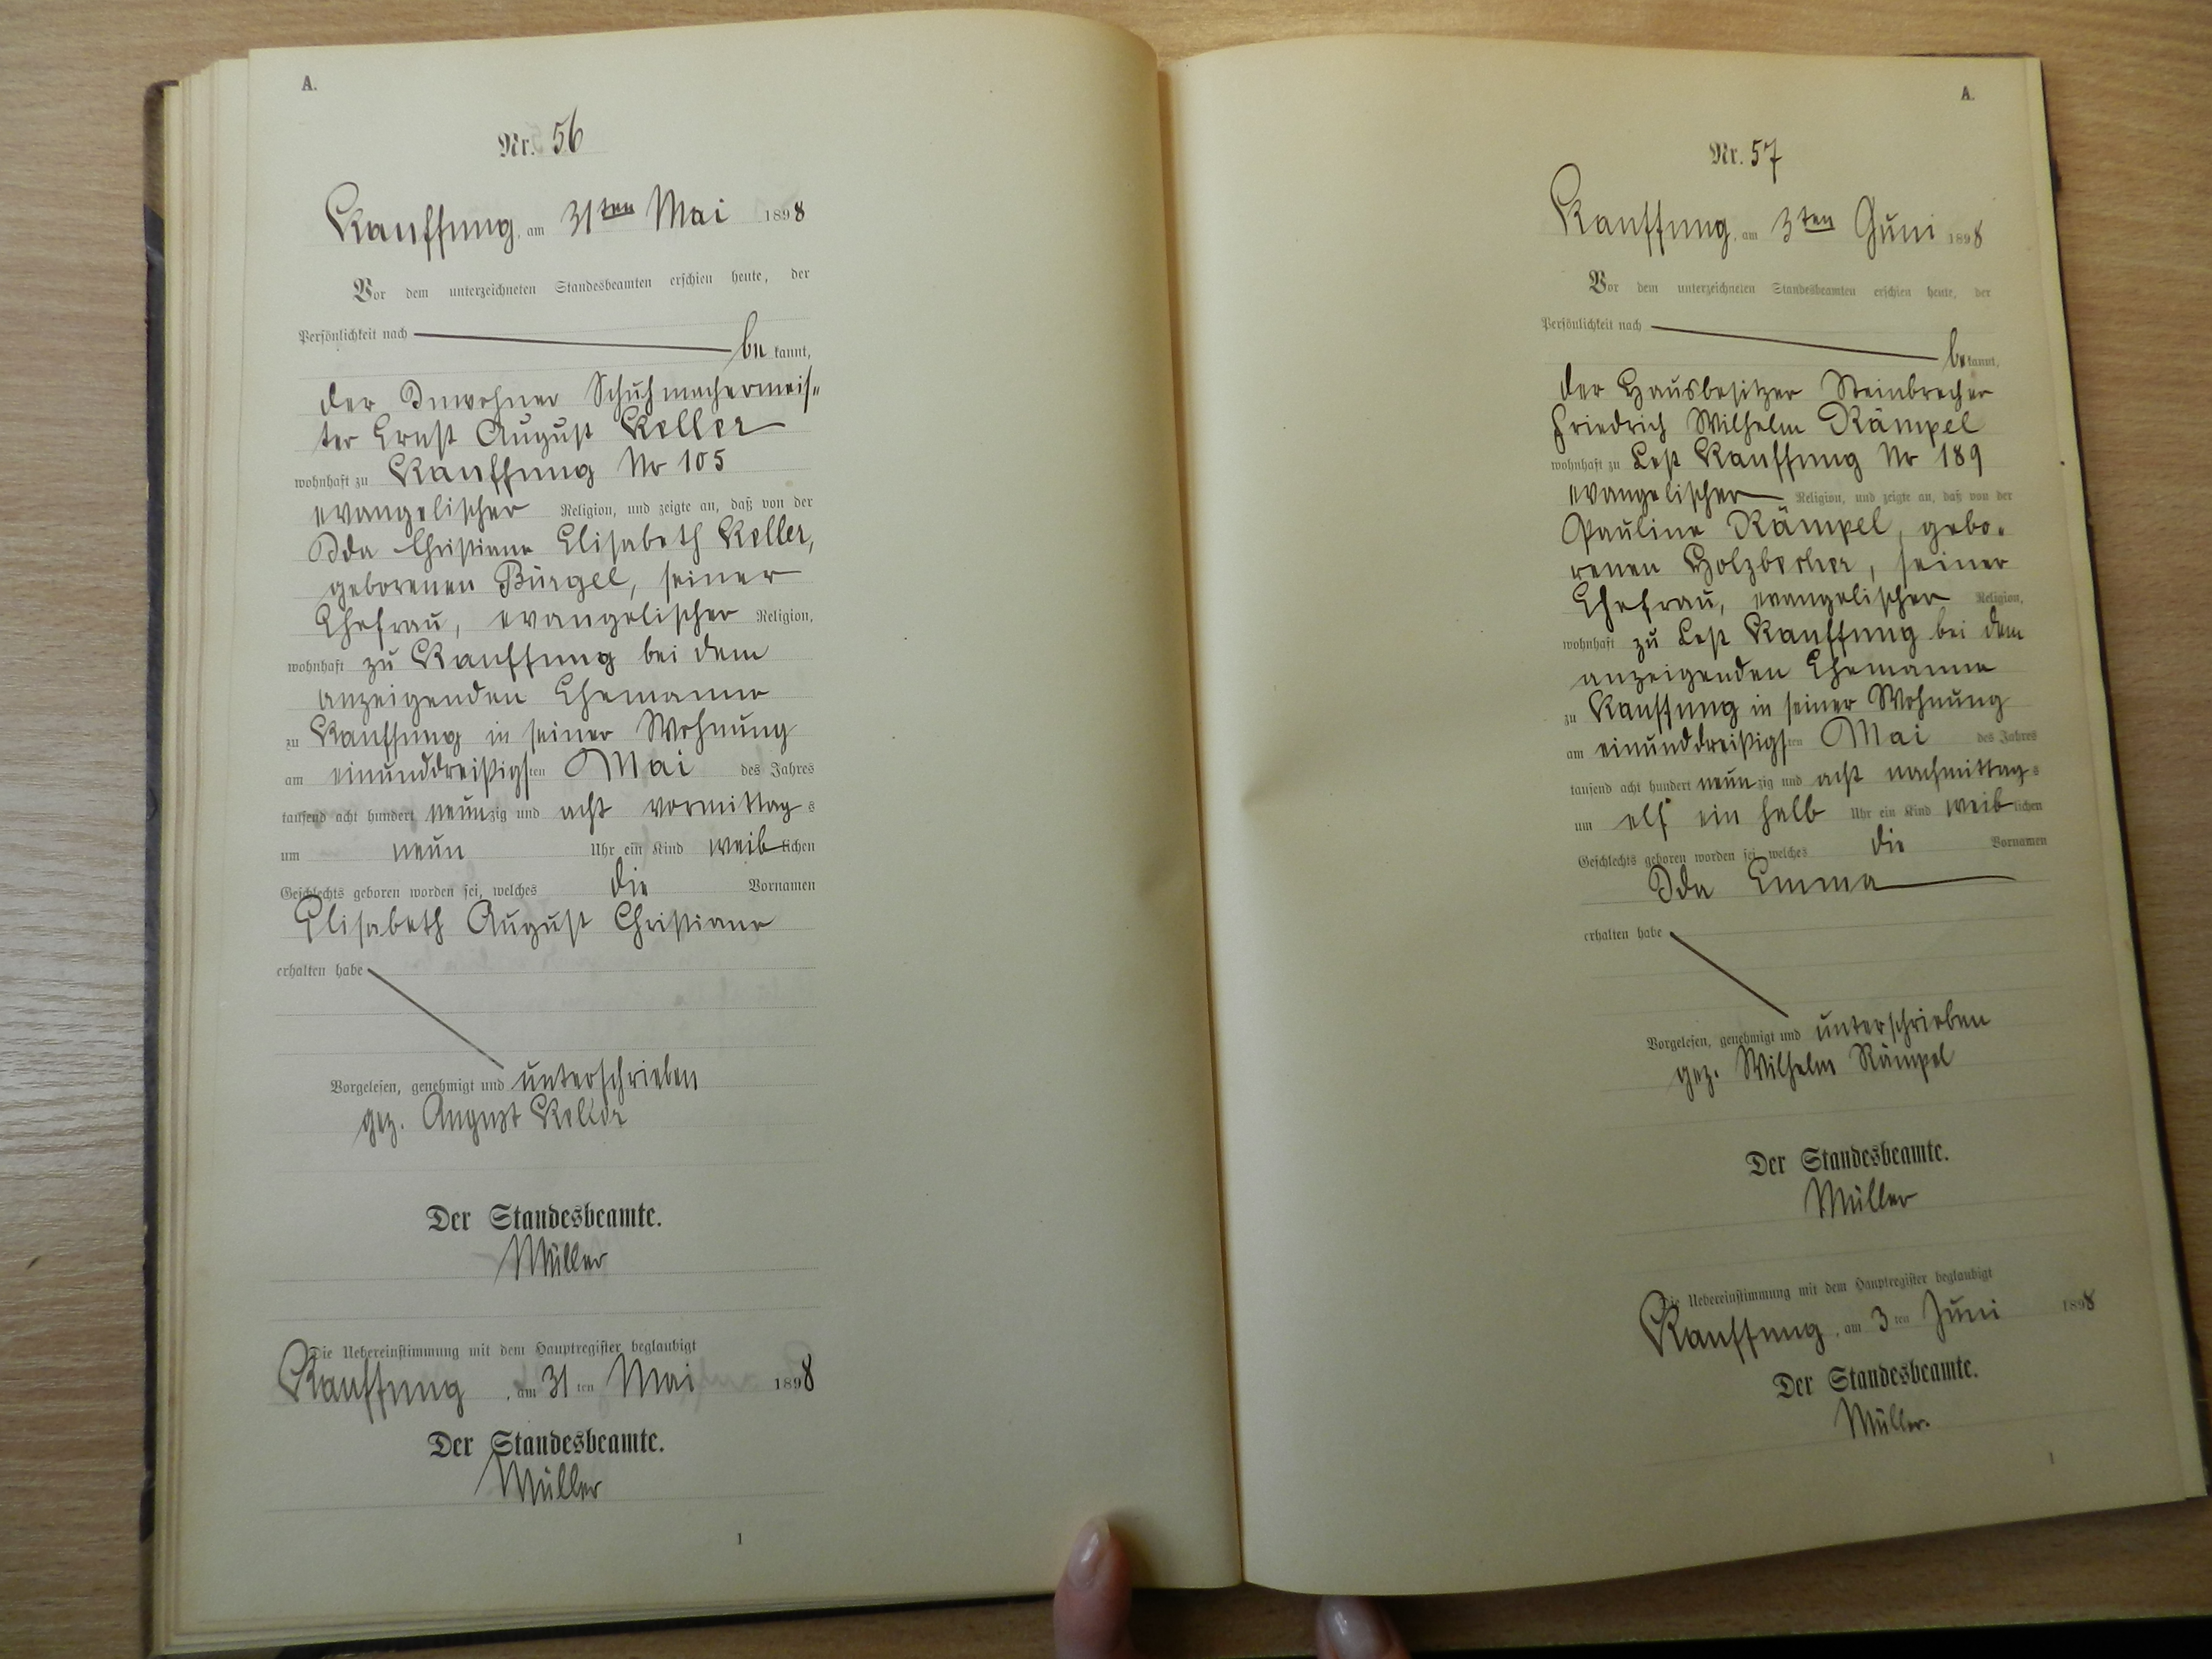 A.
Nr. 56
Kauffung, am 31ten Mai 1898
Vor dem unterzeichneten Standesbeamten erschien heute, der
Persönlichkeit nach
be kannt,
der Inwohner Schuhmachermeis-
ter Ernst August Keller
wohnhaft zu Kauffung No 105
evangelischer Religion, und zeigte an, daß von der
Ida Christiane Elisabeth Keller,
geborenen Bürgel, seiner
Ehefrau, evangelischer Religion,
wohnhaft zu Kauffung bei dem
anzeigenden Ehemanne
zu Kauffung in seiner Wohnung
am einunddreißigsten Mai des Jahres
tausend acht hundert neunzig und acht vormittags
um neun Uhr ein Kind weiblichen
Geschlechts geboren worden sei, welches die Vornamen
Elisabeth August Christiane
erhalten habe
Vorgelesen, genehmigt und unterschrieben
gez. August Keller
Der Standesbeamte.
Müller
Die Uebereinstimmung mit dem Hauptregister beglaubigt
Kauffung, am 31ten Mai 1898
Der Standesbeamte.
Müller
1
A.
Nr. 57
Kauffung, am 3ten Juni 1898
Vor dem unterzeichneten Standesbeamten erschien heute, der
Persönlichkeit nach
be kannt,
der Hausbesitzer Steinbrecher
Friedrich Wilhelm Rämpel
wohnhaft zu Kauffung No 189
evangelischer Religion, und zeigte an, daß von der
Pauline Rämpel, gebo-
renen Holzbecher, seiner
Ehefrau, evangelischer Religion,
wohnhaft zu Kauffung bei dem
anzeigenden Ehemanne
zu Kauffung in seiner Wohnung
am einunddreißigsten Mai des Jahres
tausend acht hundert neunzig und acht nachmittags
um elf ein halb Uhr ein Kind weiblichen
Geschlechts geboren worden sei, welches die Vornamen
Ida Emma
erhalten habe
Vorgelesen, genehmigt und unterschrieben
gez. Wilhelm Rämpel
Der Standesbeamte.
Müller
Die Uebereinstimmung mit dem Hauptregister beglaubigt
Kauffung, am 3ten Juni 1898
Der Standesbeamte.
Müller.
1